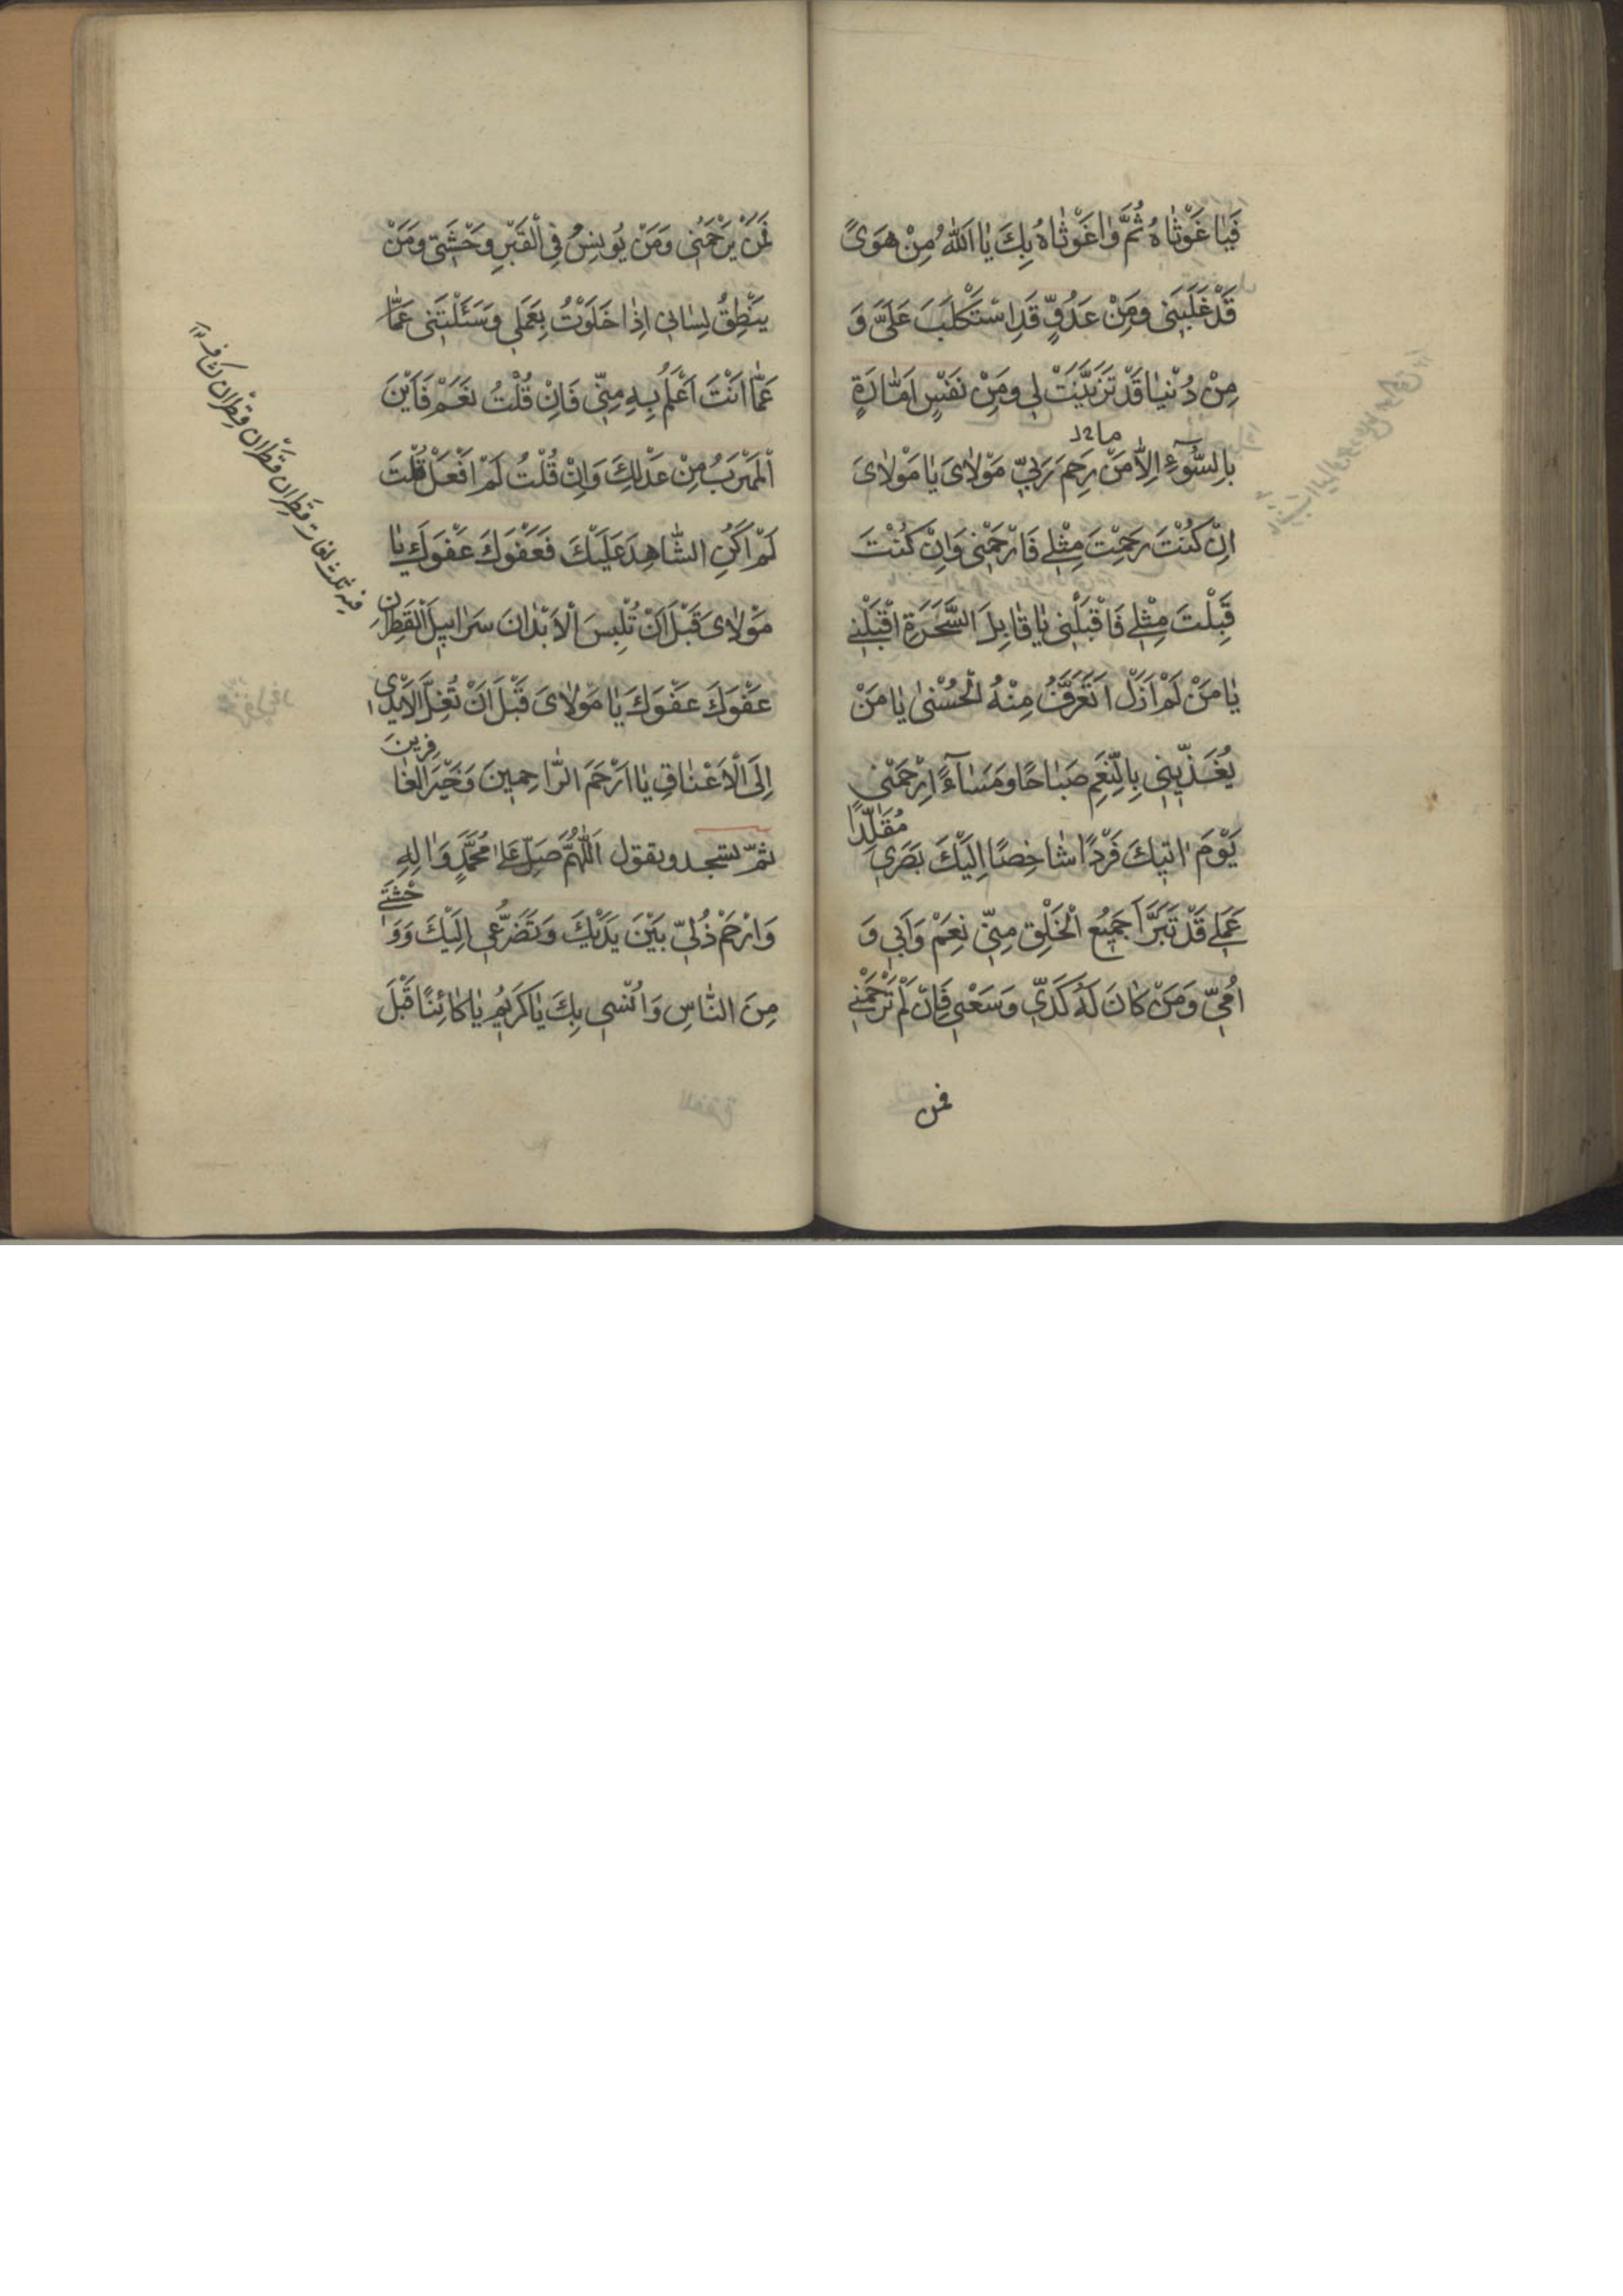 فَيٰا غَوْثٰاهُ ثُمَّ وٰاغَوْثٰاهُ بِكَ يٰا اَللّٰهُ مِنْ هَوَىً
قَدْ غَلَبَنِى وَمِنْ عَدُوٍّ قَدِ اسْتَكْلَبَ عَلَىَّ وَ
مِنْ دُنْيٰا قَدْ تَزَيَّنَتْ لِى وَمِنْ نَفْسٍ اَمّٰارَةٍ
بِالسُّوۤءِ اِلاّٰ مَنْ رَحِمَ رَبِّى مَوْلاٰىَ يٰا مَوْلاٰىَ
اِنْ كُنْتَ رَحِمْتَ مِثْلِى فَارْحَمْنِى وَاِنْ كُنْتَ
قَبِلْتَ مِثْلِى فَاقْبَلْنِى يٰا قٰابِلَ السَّحَرَةِ اقْبَلْنِى
يٰا مَنْ لَمْ اَزَلْ اَتَعَرَّفُ مِنْهُ الْحُسْنٰى يٰا مَنْ
يُغَذِّيْنِى بِالنِّعَمِ صَبٰاحًا وَمَسٰاۤءً اِرْحَمْنِى
يَوْمَ اٰتِيكَ فَرْدًا شٰاخِصًا اِلَيْكَ بَصَرِى مُقَلِّدًا
عَمَلِى قَدْ تَبَرَّاَ جَمِيْعُ الْخَلْقِ مِنِّى نَعَمْ وَاَبِى وَ
اُمِّى وَمَنْ كٰانَ لَهُ كَدِّى وَسَعْيِى فَاِنْ لَمْ تَرْحَمْنِى
فمن
فَمَنْ يَرْحَمُنِى وَمَنْ يُونِسُ فِى الْقَبْرِ وَحْشَتِى وَمَنْ
يَنْطِقُ لِسٰانِى اِذٰا خَلَوْتُ بِعَمَلِى وَسَئَلْتَنِى عَمّٰا
عَمّٰا اَنْتَ اَعْلَمُ بِهِ مِنِّى فَاِنْ قُلْتُ نَعَمْ فَاَيْنَ
الْمَهْرَبُ مِنْ عَدْلِكَ وَاِنْ قُلْتُ لَمْ اَفْعَلْ قُلْتَ
لَمْ اَكُنِ الشّٰاهِدَ عَلَيْكَ فَعَفْوَكَ عَفْوَكَ يٰا
مَوْلاٰىَ قَبْلَ اَنْ تُلْبِسَ الْاَبْدٰانَ سَرٰابِيلَ الْقَطِرٰانِ
عَفْوَكَ عَفْوَكَ يٰا مَوْلاٰىَ قَبْلَ اَنْ تُغَلَّ الْاَيْدِى
اِلَى الْاَعْنٰاقِ يٰا اَرْحَمَ الرّٰاحِمِينَ وَخَيْرَ الْغٰافِرِينَ
ثمّ تسجد وتقول اَللّٰهُمَّ صَلِّ عَلىٰ مُحَمَّدٍ وَاٰلِهِ
وَارْحَمْ ذُلِّى بَيْنَ يَدَيْكَ وَتَضَرُّعِى اِلَيْكَ وَوَحْشَتِى
مِنَ النّٰاسِ وَاُنْسِى بِكَ يٰا كَرِيمُ يٰا كٰائِنًا قَبْلَ
فيه ثلث لغات قَطِران قَطْران قِطْران